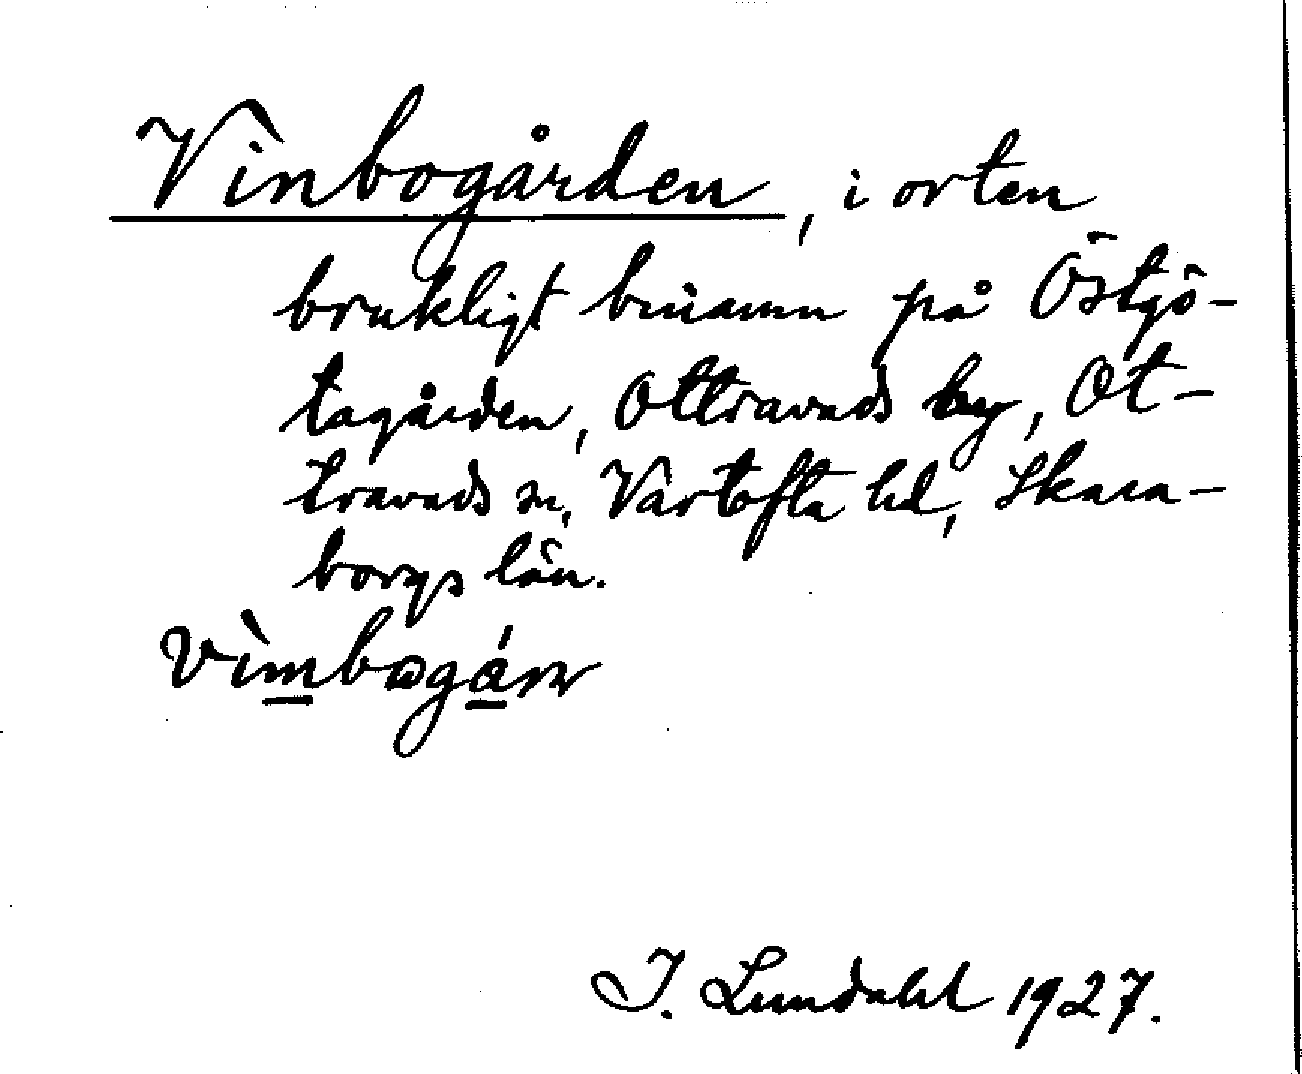 Vinbogården, i orten
brukligt binamn på Östgö-
tagården, Ottravads by, Ot-
travads sn, Vartofta hd, Skara-
borgs län.
I. Lundahl 1927.